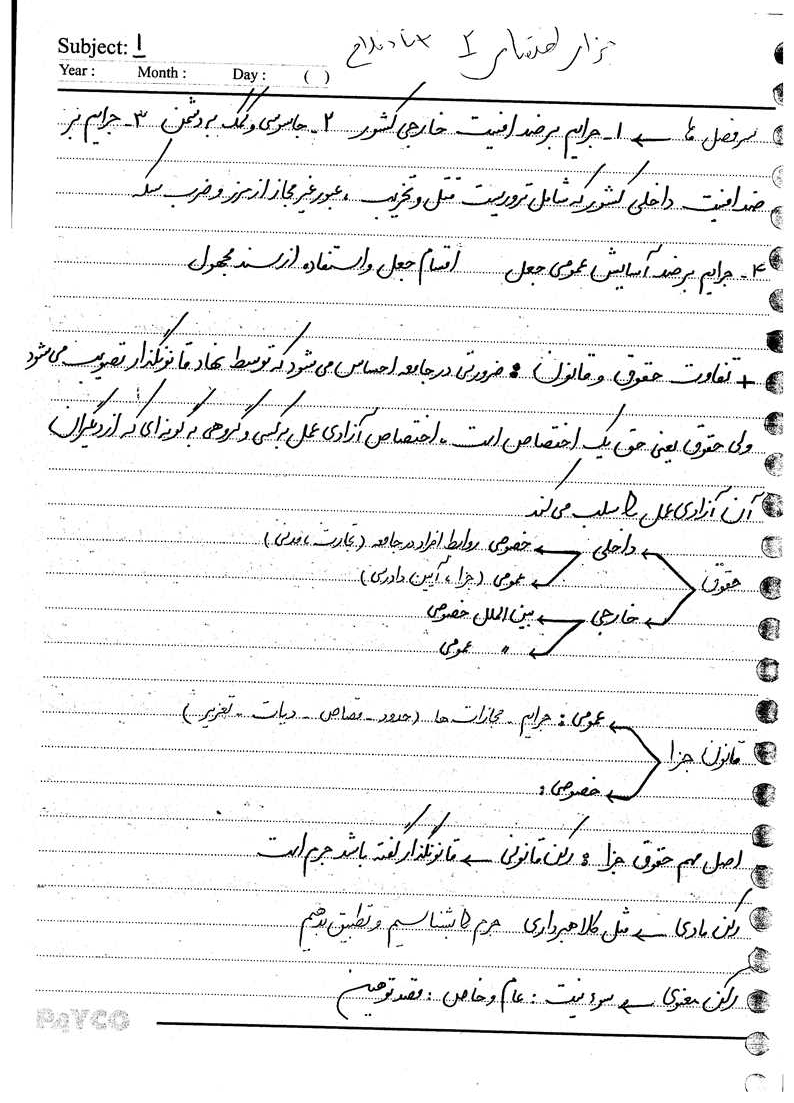 Subject: 1
جزای اختصاصی ۲ استاد
Year : Month : Day : ( )
سرفصل ها ← ۱- جرایم برضد امنیت خارجی کشور ۲- جاسوسی و کمک به دشمن ۳- جرایم بر
ضد امنیت داخلی کشور که شامل تروریست قتل و تخریب ، عبور غیر مجاز از مرز و ضرب سکه
۴- جرایم برضد آسایش عمومی جعل اقسام جعل و استفاده از سند مجعول
+ تفاوت حقوق و قانون : ضرورتی در جامعه احساس می شود که توسط نهاد قانونگذار تصویب می شود
ولی حقوق یعنی حق یک اختصاص است . اختصاص آزادی عمل به کسی و گروهی به گونه ای که از دیگران
آن آزادی عمل را سلب می کند
حقوق
داخلی ← خصوصی روابط افراد در جامعه (تجارت ، مدنی)
← عمومی (جزا ، آیین دادرسی)
خارجی ← بین الملل خصوصی
← " عمومی
قانون جزا
عمومی : جرایم - مجازات ها (حدود - قصاص - دیات - تعزیر)
خصوصی :
اصل مهم حقوق جزا : رکن قانونی ← قانونگذار گفته باشد جرم است
رکن مادی ← مثل کلاهبرداری جرم را بشناسیم و تطبیق بدهیم
رکن معنوی ← سوء نیت : عام و خاص : قصد توهین
PAYCO